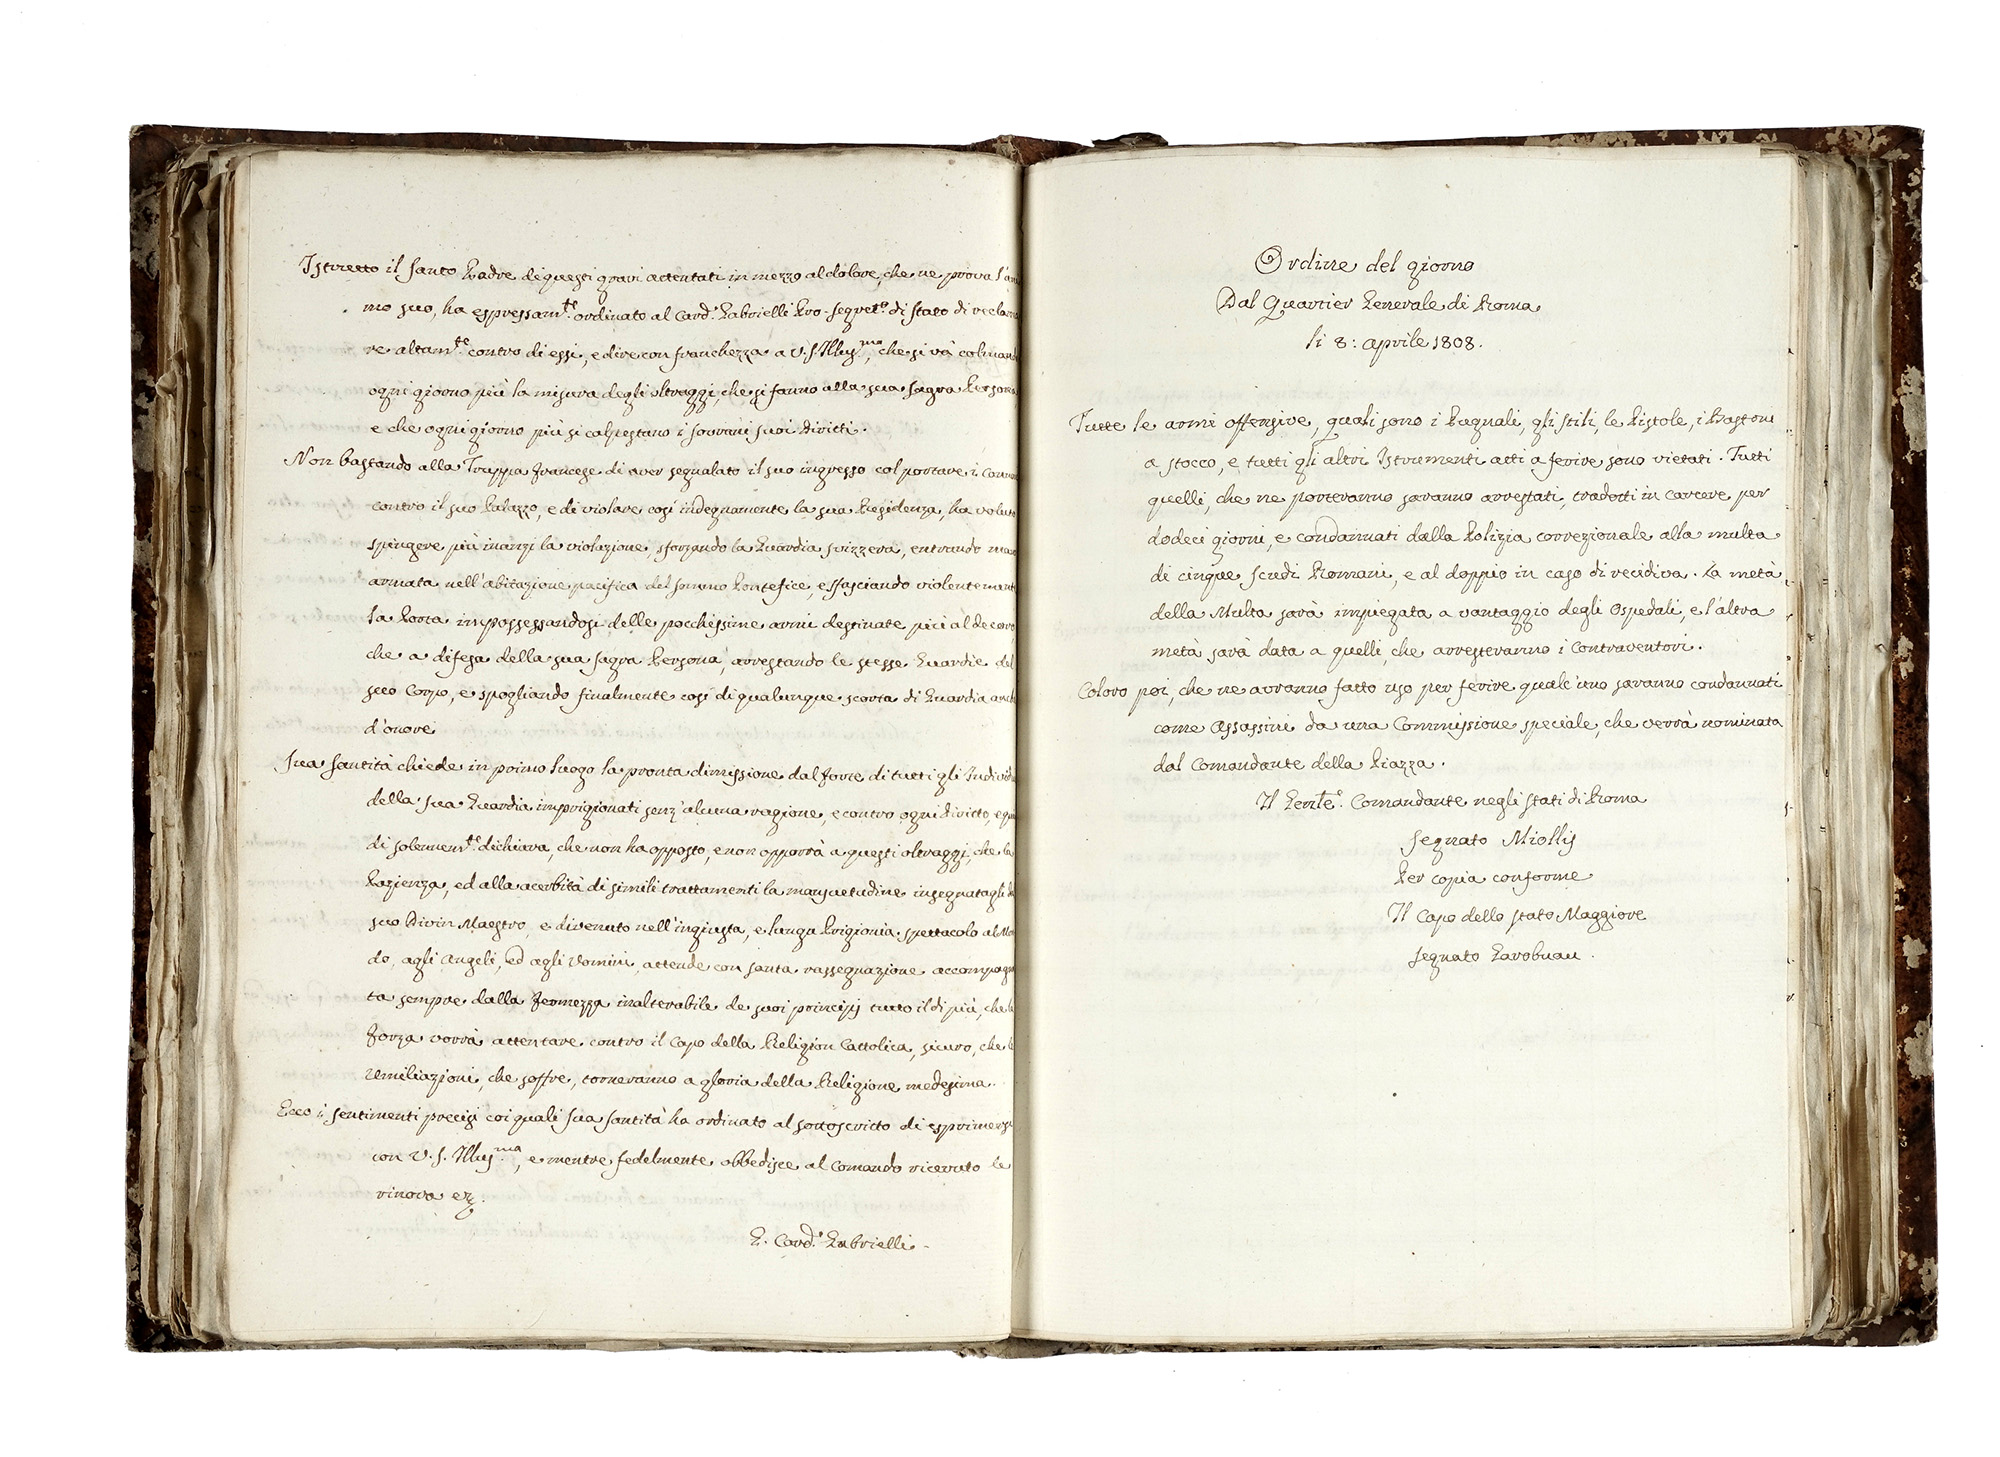 Istrutto il Santo Padre di questi gravi attentati in mezzo al dolore, che ne prova l'ani
mo suo, ha espressam.te ordinato al Card.e Gabrielli Pro-Segret.o di Stato di reclama
re altam.te contro di essi, e dire con franchezza a V.S. Illus.ma, che si và colmando
ogni giorno più la misura degli oltraggi, che si fanno alla sua Sagra Persona,
e che ogni giorno più si calpestano i Sovrani suoi Diritti.
Non bastando alla Truppa Francese di aver segnalato il suo ingresso col portare i Cannoni
contro il suo Palazzo, e di violare così indegnamente la sua Residenza, ha voluto
spingere più inanzi la violazione, sforzando la Guardia Svizzera, entrando mano
armata nell'abitazione pacifica del Sommo Pontefice, e sfasciando violentemente
la Porta impossessandosi delle pochissime armi destinate più al decoro,
che a difesa della sua Sagra Persona, arrestando le stesse Guardie del
suo Corpo, e spogliando finalmente così di qualunque scorta di Guardia anche
d'onore
Sua Santità chiede in primo luogo la pronta dimissione dal Forte di tutti gli Individui
della sua Guardia imprigionati senz'alcuna ragione, e contro ogni diritto, e quin
di solennem.te dichiara, che non ha opposto, e non opporrà a questi oltraggi, che la
Pazienza, ed alla acerbità di simili trattamenti la mansuetudine insegnatagli dal
suo Divin Maestro, e divenuto nell'ingiusta, e lunga Prigionia spettacolo al Mon
do, agli Angeli, ed agli Uomini, attende con santa rassegnazione accompagna
ta sempre dalla Fermezza inalterabile de suoi principj tutto il di più, che la
Forza vorrà attentare contro il Capo della Religion Cattolica, sicuro, che le
umiliazioni, che soffre, torneranno a gloria della Religione medesima.
Ecco i sentimenti precisi coi quali Sua Santità ha ordinato al sottoscritto di esprimersi
con V.S. Illus.ma, e mentre fedelmente obbedisce al Comando ricevuto le
rinova ec.
G. Card.e Gabrielli.
Ordine del giorno
Dal Quartier Generale di Roma
li 8: aprile 1808.
Tutte le armi offensive, quali sono i Pugnali, gli stili, le Pistole, i Bastoni
a stocco, e tutti gli altri Istrumenti atti a ferire sono vietati. Tutti
quelli, che ne porteranno saranno arrestati, tradotti in carcere per
dodeci giorni, e condannati dalla Polizia correzionale alla multa
di cinque scudi Romani, e al doppio in caso di recidiva. La metà
della Multa sarà impiegata a vantaggio degli Ospedali, e l'altra
metà sarà data a quelli, che arresteranno i Contraventori.
Coloro poi, che ne avranno fatto uso per ferire qualc'uno saranno condannati
come Assassini da una Commissione speciale, che verrà nominata
dal Comandante della Piazza.
Il Gen.le Comandante negli Stati di Roma
Segnato Miollis
Per copia conforme
Il Capo dello Stato Maggiore
Segnato Garobuau.